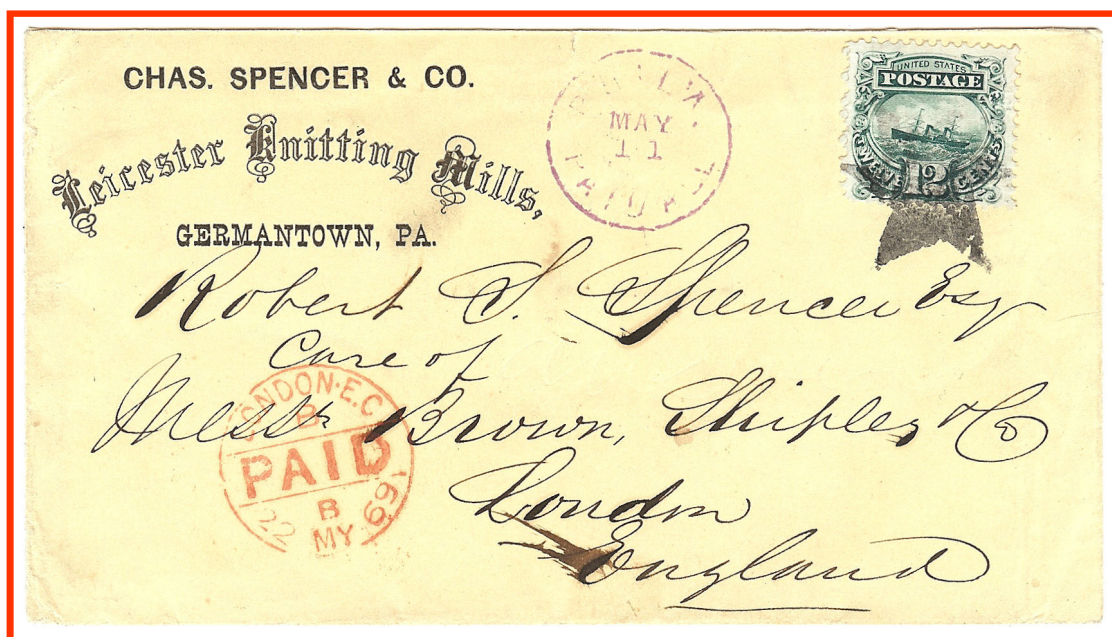 CHAS. SPENCER & CO.
Leicester Knitting Mills,
GERMANTOWN, PA.
PHILA.
MAY
11
PAID
UNITED STATES
POSTAGE
TWELVE 12 CENTS
Robert S. Spencer Esq
Care of
Messrs Brown, Shipley & Co
London
England
LONDON·E.C
B
PAID
B
22 MY 69